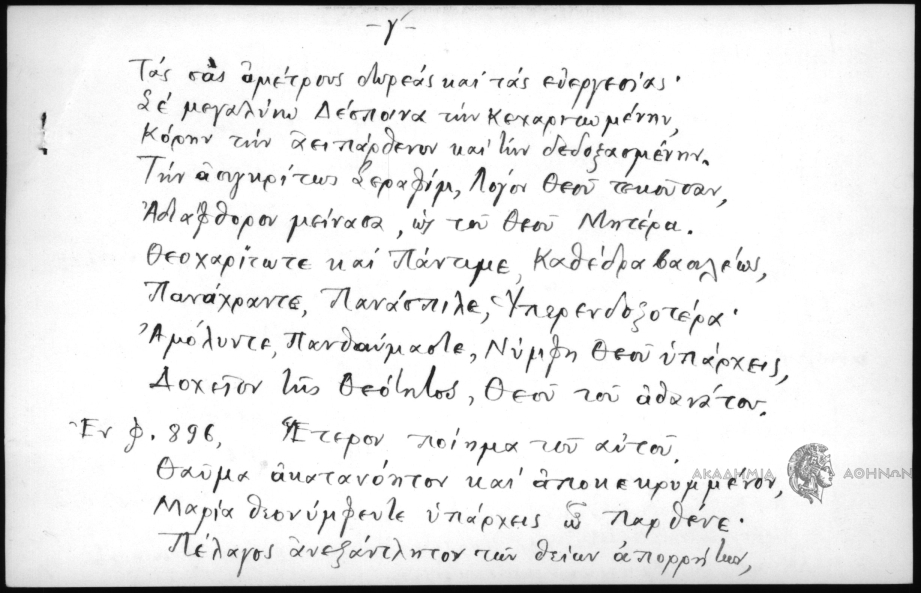 -γ'-
Τάς σάς ἀμέτρους δωρεάς καί τάς εὐεργεσίας·
Σέ μεγαλύνω Δέσποινα τήν Κεχαριτωμένην,
Κόρην τήν ἀειπάρθενον καί τήν δεδοξασμένην.
Τήν ἀσυγκρίτως Σεραφίμ, Λόγον Θεοῦ τεκοῦσαν,
Ἀδιάφθορον μείνασα, ὡς τοῦ Θεοῦ Μητέρα.
Θεοχαρίτωτε καί Πάντιμε, Καθέδρα βασιλέως,
Πανάχραντε, Πανάσπιλε, Ὑπερενδοξοτέρα·
Ἀμόλυντε, Πανθαύμαστε, Νύμφη Θεοῦ ὑπάρχεις,
Δοχεῖον τῆς Θεότητος, Θεοῦ τοῦ ἀθανάτου.
Ἐν φ. 896, Ἕτερον ποίημα τοῦ αὐτοῦ.
Θαῦμα ἀκατανόητον καί ἀποκεκρυμμένον,
Μαρία θεονύμφευτε ὑπάρχεις ὦ Παρθένε·
Πέλαγος ἀνεξάντλητον τῶν θείων ἀπορρήτων,
ΑΚΑΔΗΜΙΑ ΑΘΗΝΩΝ